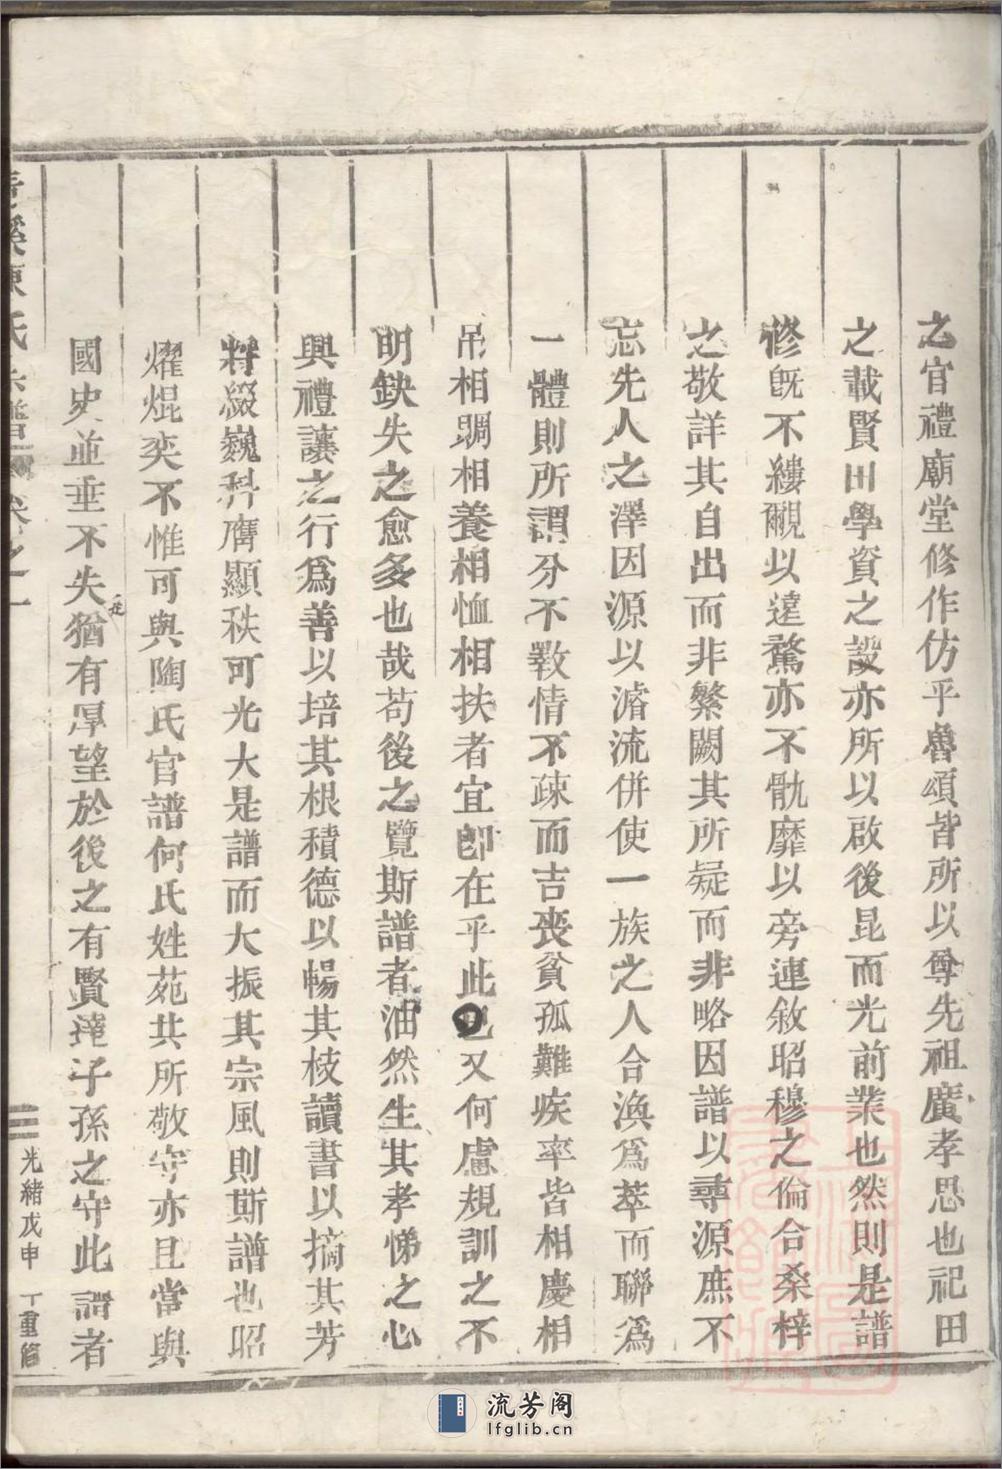 之官禮廟堂修作仿乎魯頌皆所以尊先祖廣孝思也祀田
之載賢田學資之設亦所以啟後昆而光前業也然則是譜
修既不縷覼以遠騖亦不骫靡以旁連敘昭穆之倫合桑梓
之敬詳其自出而非繁闕其所疑而非略因譜以尋源庶不
忘先人之澤因源以濬流併使一族之人合渙爲萃而聯爲
一體則所謂分不斁情不疎而吉喪貧孤難疾率皆相慶相
吊相賙相養相恤相扶者宜卽在乎此已又何慮規訓之不
明缺失之愈多也哉苟後之覽斯譜者油然生其孝悌之心
興禮讓之行爲善以培其根積德以暢其枝讀書以摘其芳
將綴巍科膺顯秩可光大是譜而大振其宗風則斯譜也昭
燿焜奕不惟可與陶氏官譜何氏姓苑共所敬守亦且當與
國史並垂不失猶有厚望於後之有賢達子孫之守此譜者
溪陳氏宗譜 卷之一
三 光緒戊申 丁重脩
流芳阁
lfglib.cn